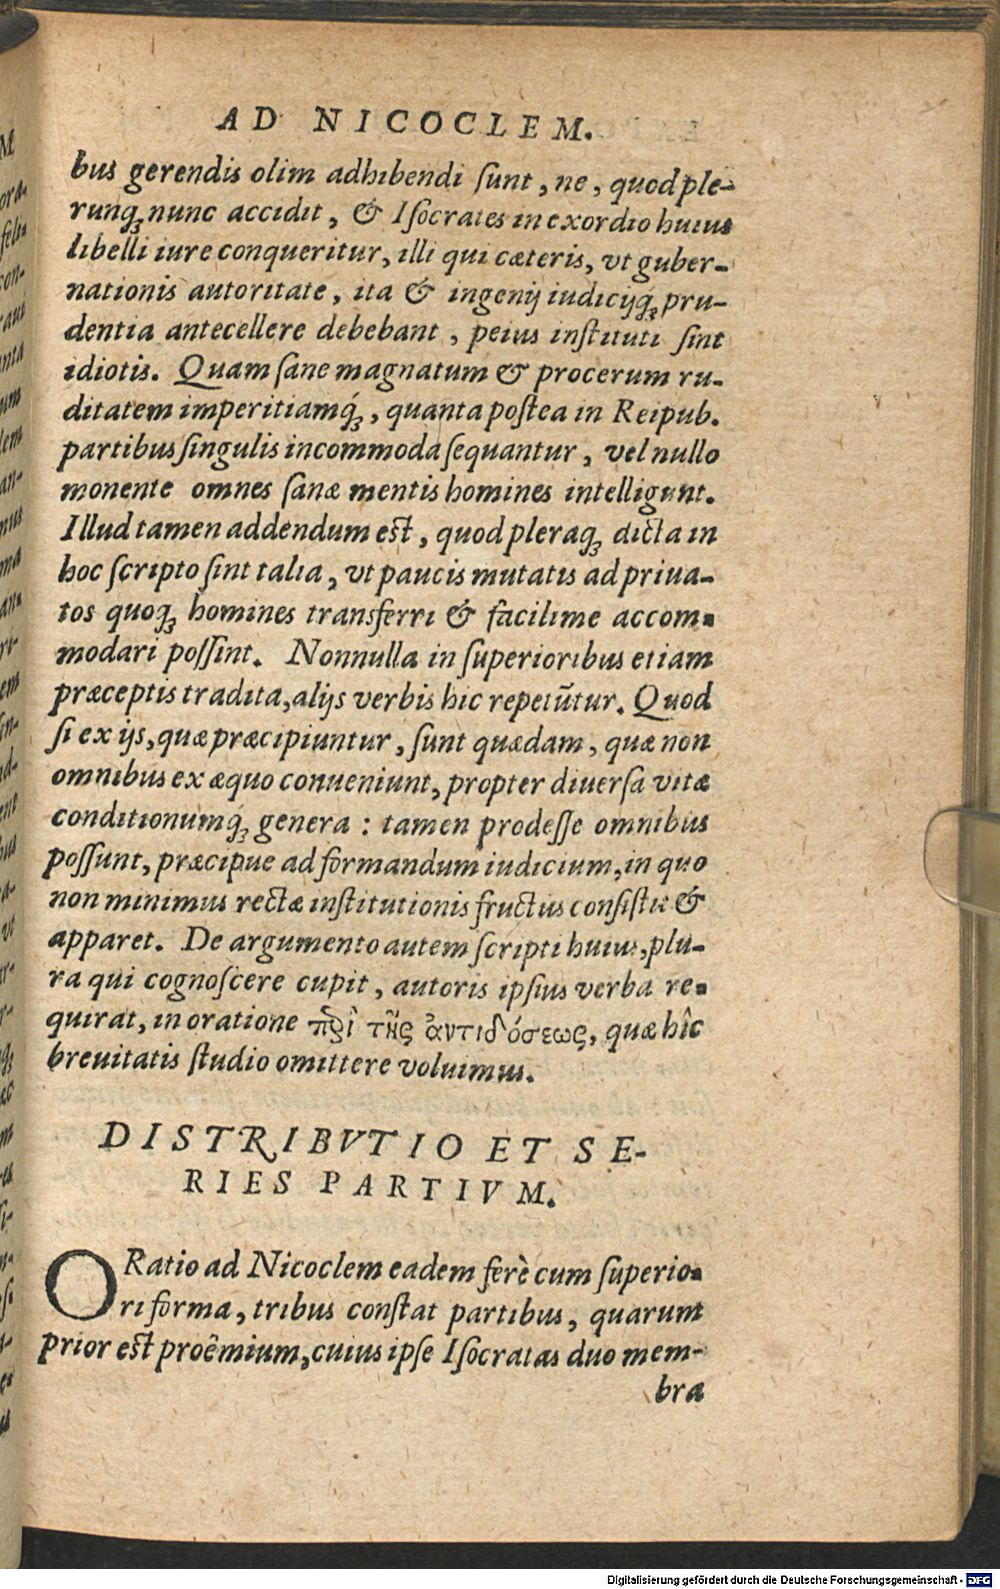 AD NICOCLEM.
bus gerendis olim adhibendi ſunt, ne, quod ple-
runq; nunc accidit, & Iſocrates in exordio huius
libelli iure conqueritur, illi qui cæteris, vt guber-
nationis autoritate, ita & ingenij iudicijq́; pru-
dentia antecellere debebant, peius inſtituti ſint
idiotis. Quam ſane magnatum & procerum ru-
ditatem imperitiamq́;, quanta poſtea in Reipub.
partibus ſingulis incommoda ſequantur, vel nullo
monente omnes ſanæ mentis homines intelligunt.
Illud tamen addendum eſt, quod pleraq; dicta in
hoc ſcripto ſint talia, vt paucis mutatis ad priua-
tos quoq; homines transferri & facilime accom-
modari poſſint. Nonnulla in ſuperioribus etiam
præceptis tradita, alijs verbis hic repetūtur. Quod
ſi ex ijs, quæ præcipiuntur, ſunt quædam, quæ non
omnibus ex æquo conueniunt, propter diuerſa vitæ
conditionumq́; genera: tamen prodeſſe omnibus
poſſunt, præcipue ad formandum iudicium, in quo
non minimus rectæ inſtitutionis fructus conſiſtit &
apparet. De argumento autem ſcripti huius, plu-
ra qui cognoſcere cupit, autoris ipſius verba re-
quirat, in oratione πρὶ τῆς ἀντιδόσεως, quæ hîc
breuitatis ſtudio omittere voluimus.
DISTRIBVTIO ET SE-
RIES PARTIVM.
ORatio ad Nicoclem eadem ferè cum ſuperio-
ri forma, tribus conſtat partibus, quarum
prior eſt proêmium, cuius ipſe Iſocratas duo mem-
bra
Digitalisierung gefördert durch die Deutsche Forschungsgemeinschaft - DFG